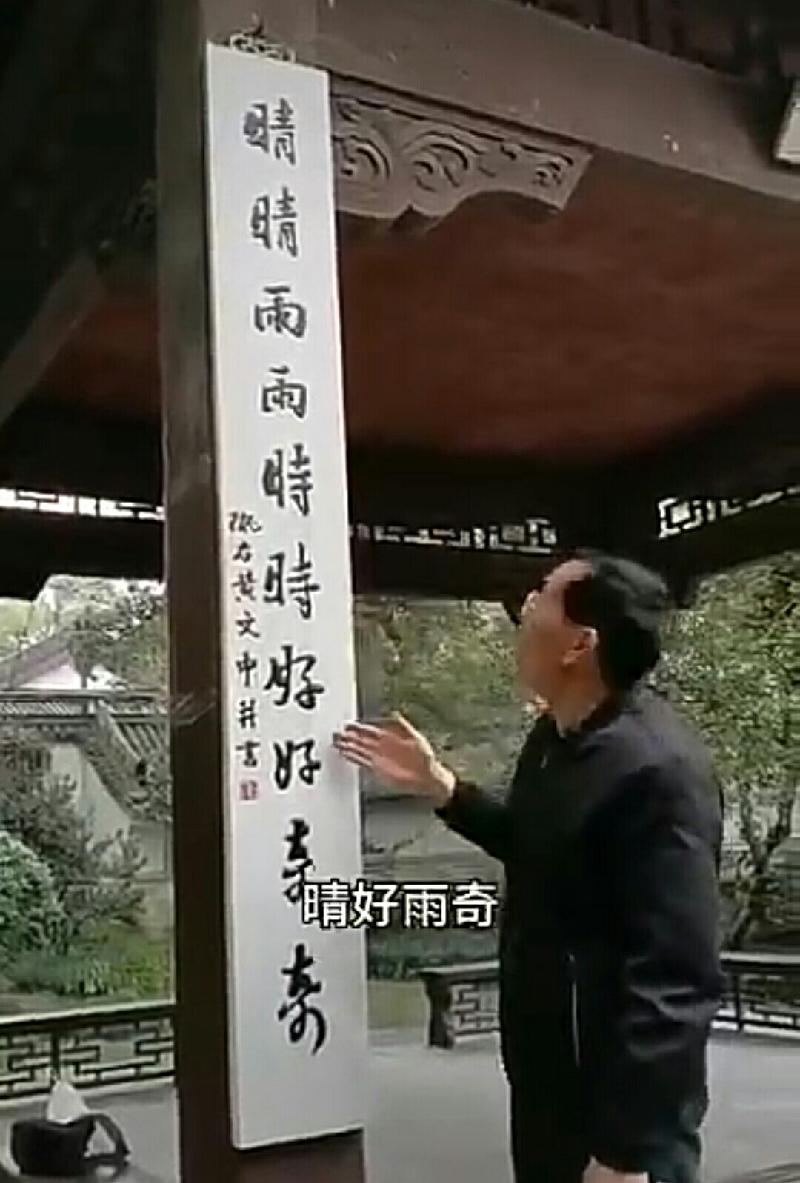 晴晴雨雨時時好好奇奇
黄文中並書
晴好雨奇